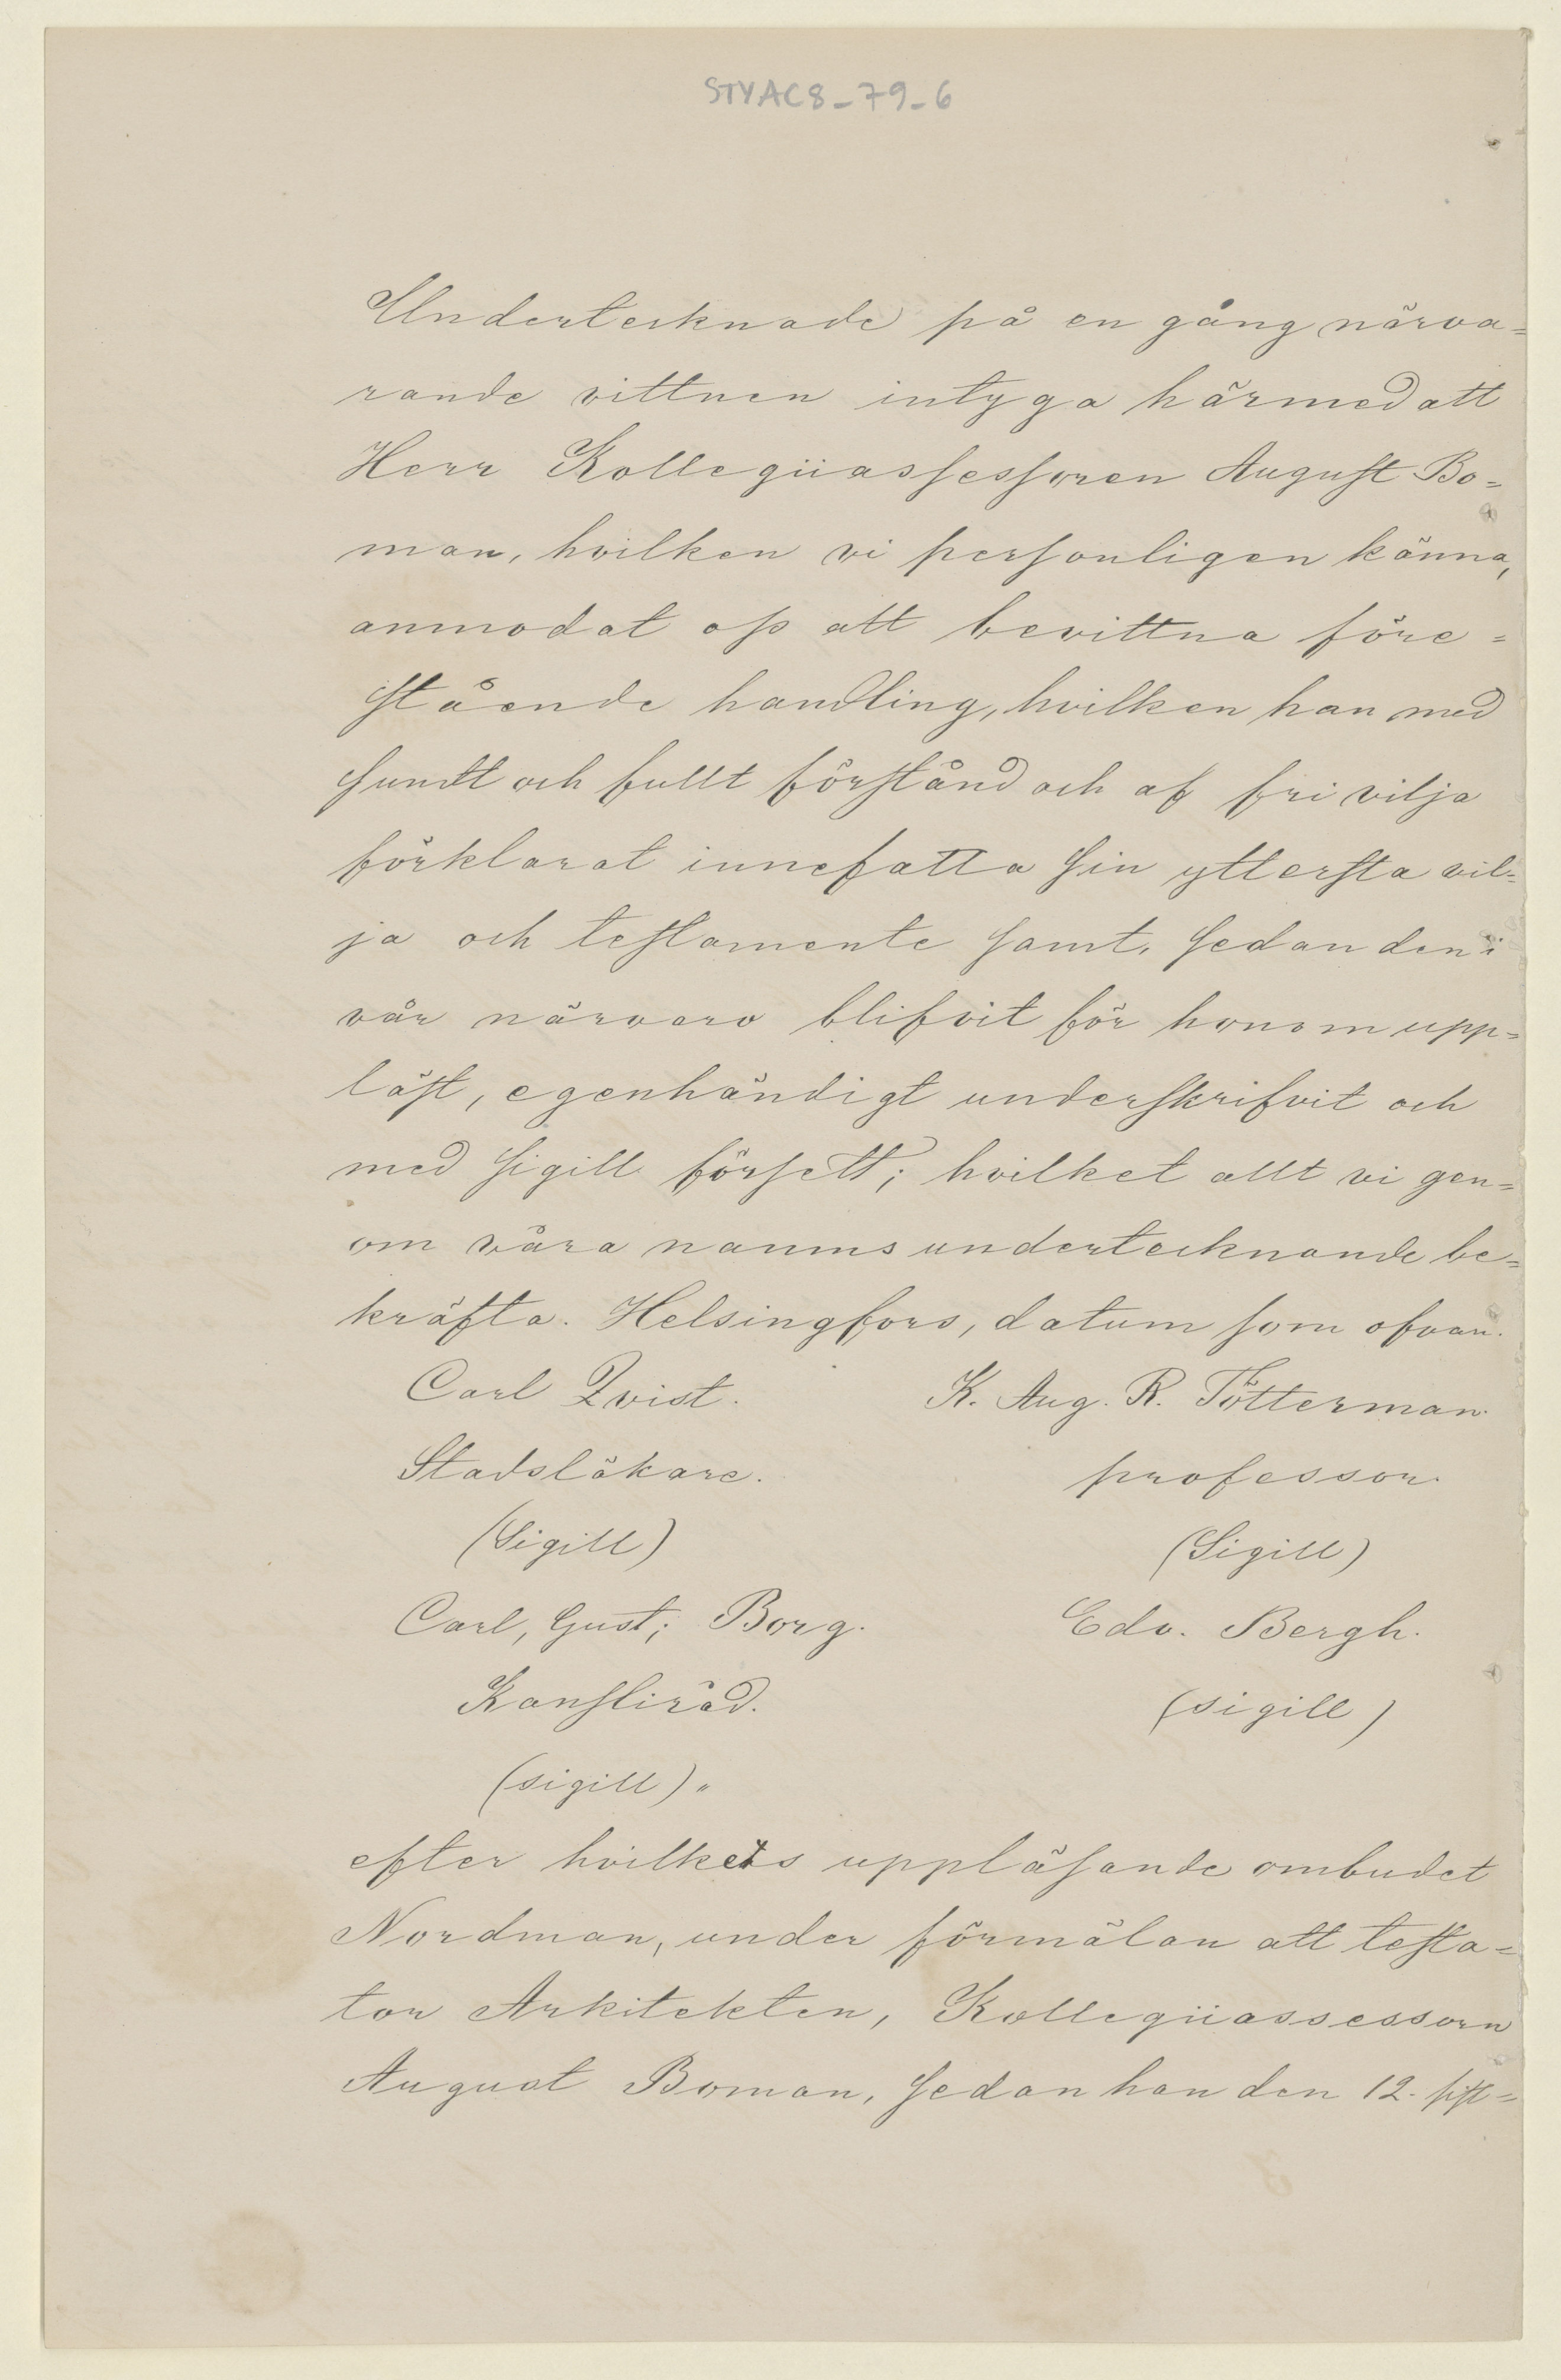 STYAC8_79_6
Undertecknade på en gång närva=
rande vittnen intyga härmed att
Herr Kollegiiassessoren August Bo=
man, hvilken vi personligen känna,
anmodat oss att bevittna före=
stående handling, hvilken han med
sundt och fullt förstånd och af fri vilja
förklarat innefatta sin yttersta vil=
ja och testamente samt, sedan den i
vår närvaro blifvit för honom upp=
läst, egenhändigt underskrifvit och
med sigill försett; hvilket allt vi gen=
om våra namns undertecknande be=
kräfta. Helsingfors, datum som ofvan.
Carl Qvist. K. Aug. R. Tötterman.
Stadsläkare. professor.
(Sigill) (Sigill)
Carl, Gust; Borg. Edv. Bergh.
Kansliråd. (sigill)
(sigill)"
efter hvilkets uppläsande ombudet
Nordman, under förmälan att testa=
tor Arkitekten, Kollegiiassessorn
August Boman, sedan han den 12. sist=